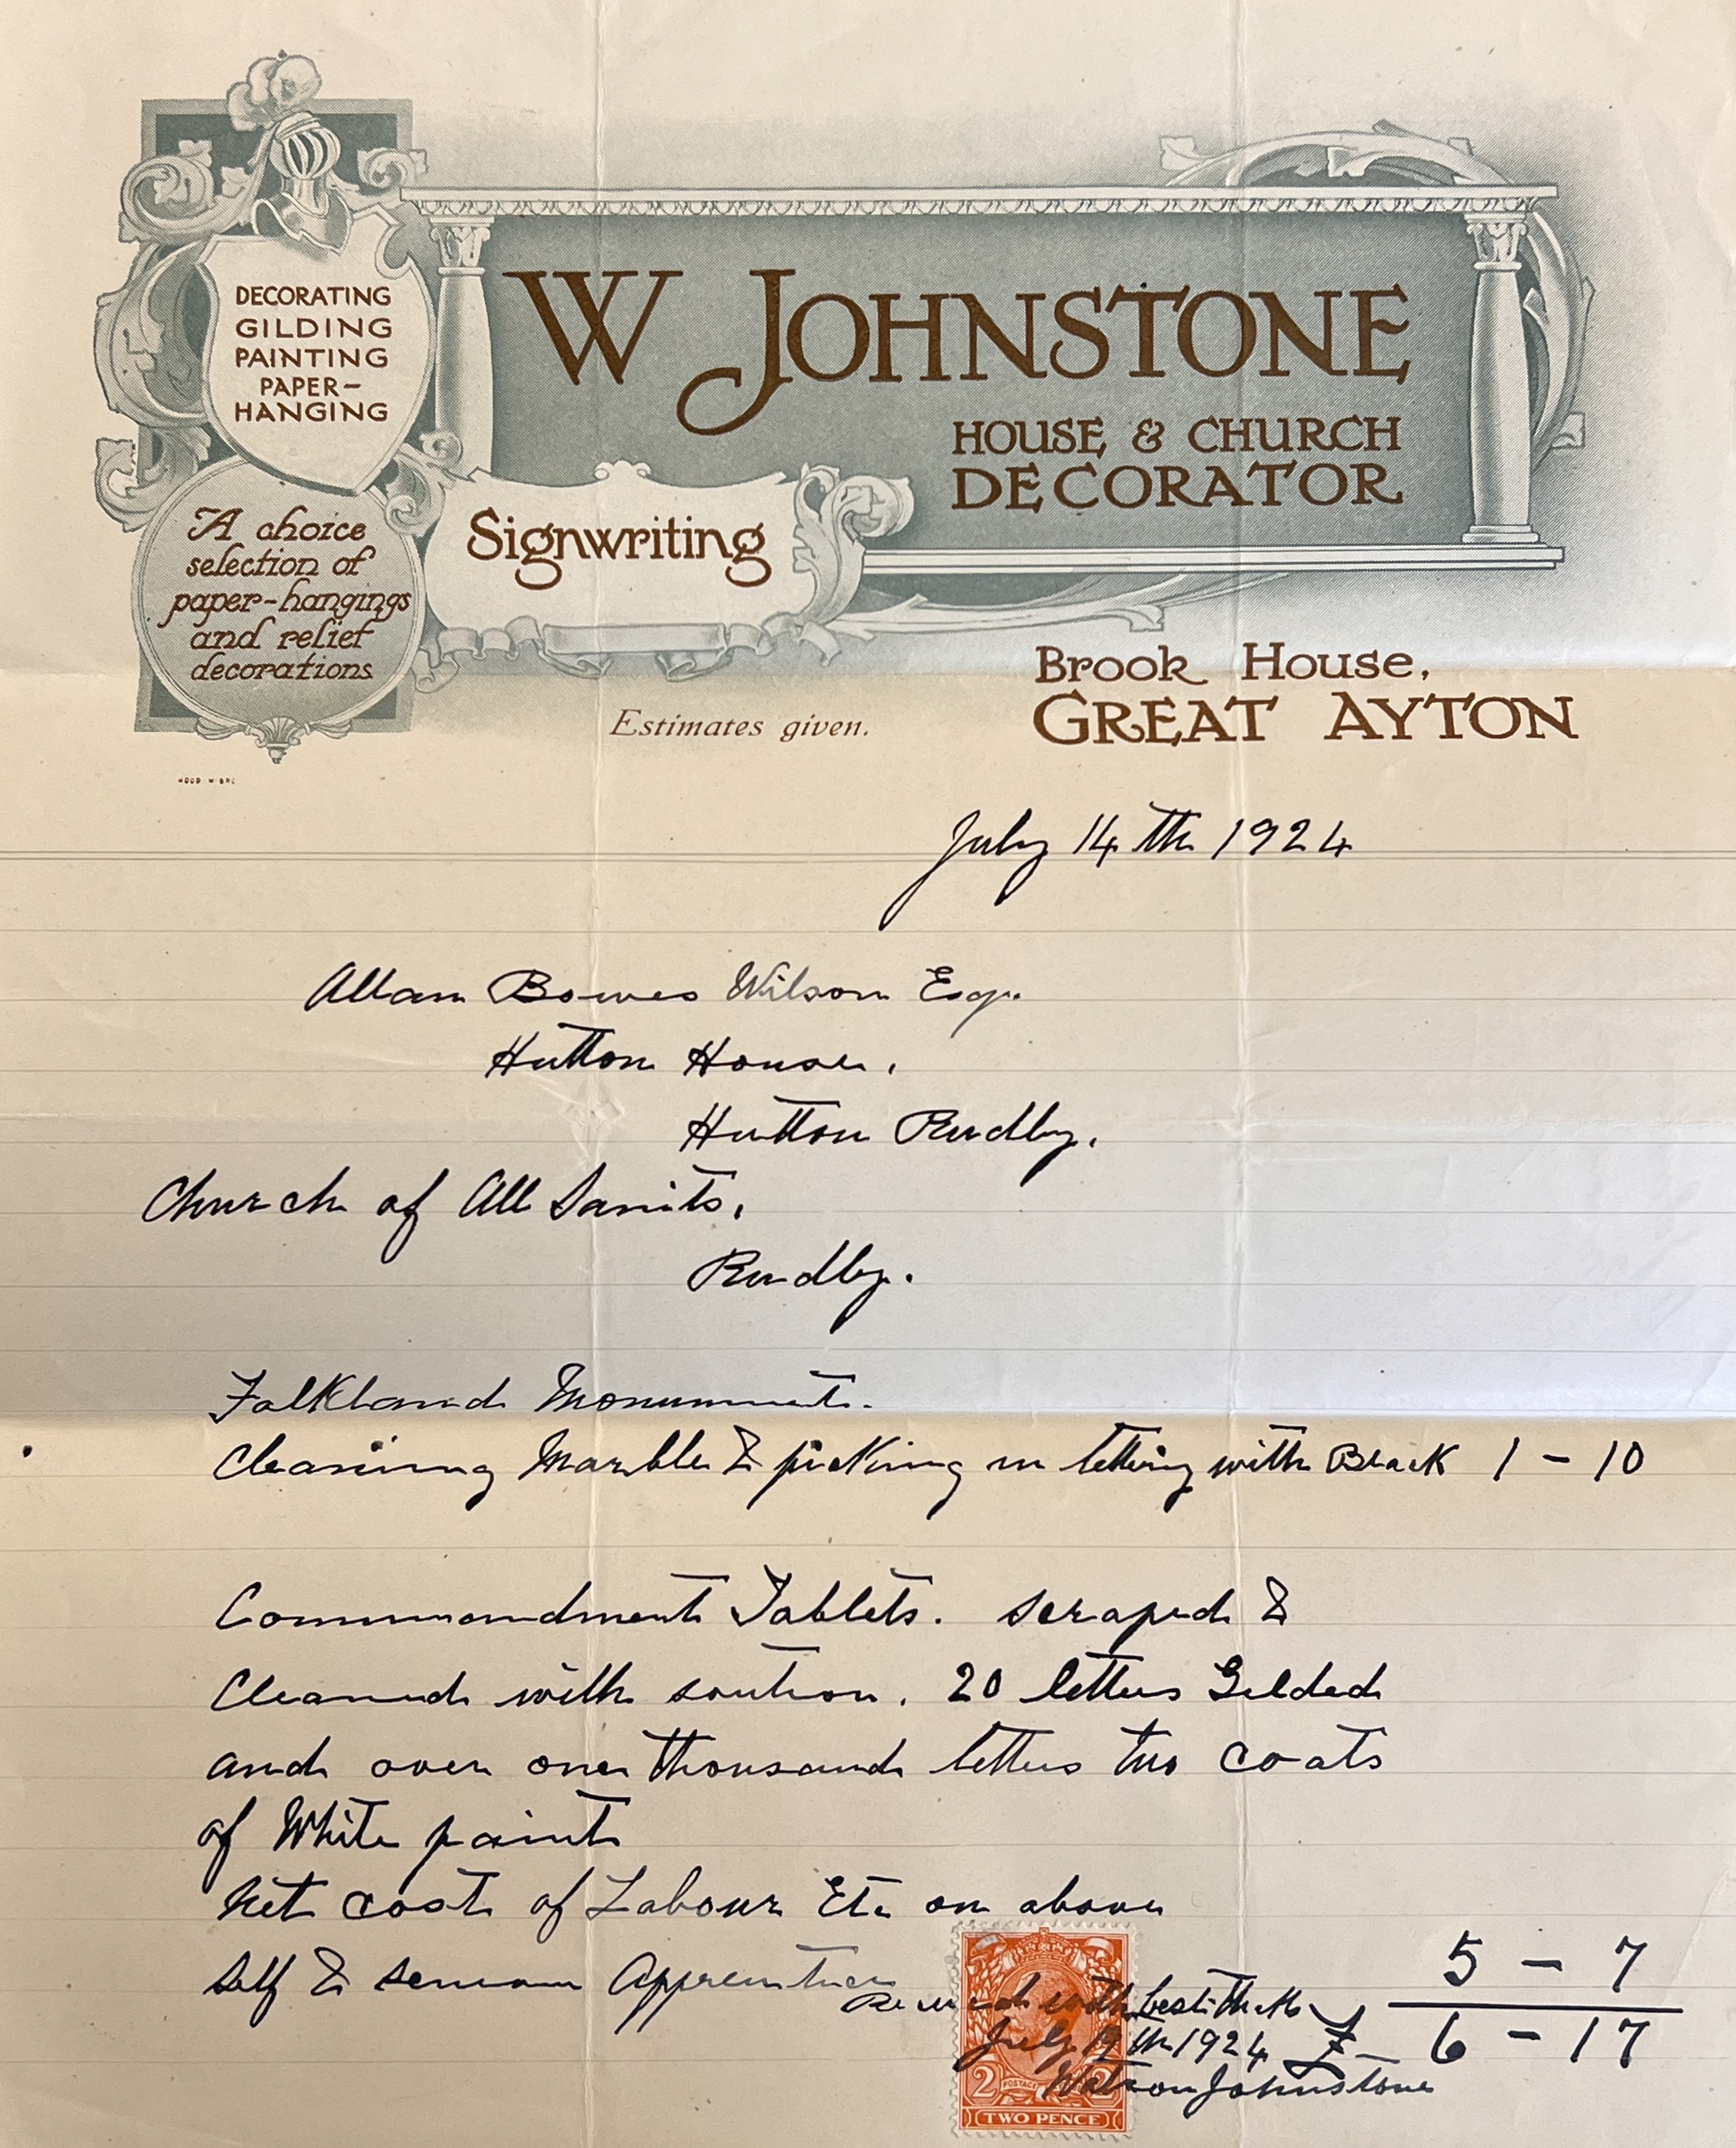 DECORATING
GILDING
PAINTING
PAPER-
HANGING
W JOHNSTONE
HOUSE & CHURCH
DECORATOR
Signwriting
A choice
selection of
paper-hangings
and relief
decorations
Brook House,
GREAT AYTON
Estimates given.
July 14th 1924
Allan Bowes Wilson Esq.
Hutton House,
Hutton Rudby.
Church of All Sanits,
Rudby.
Falkland Monument.
Cleaning Marble & picking in lettering with Black 1 - 10
Commandment Tablets. scraped &
Cleaned with soution. 20 letters Gilded
and over one thousand letters two coats
of White paint
Net cost of Labour Etc on above
Self & senior Apprentice 5 - 7
Received with best thanks
July 19th 1924 £ 6 - 17
Watson Johnstone
2 POSTAGE 2
TWO PENCE